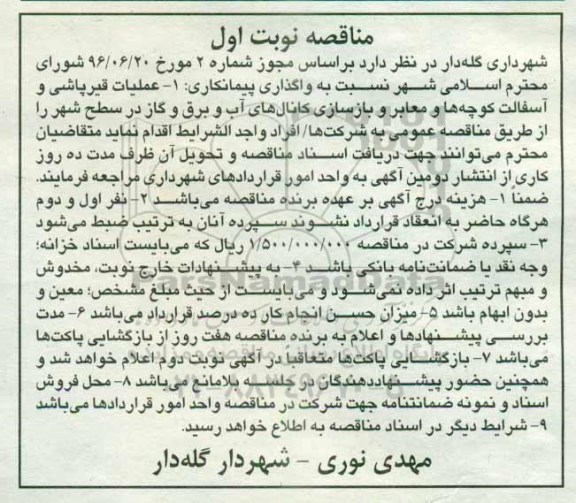 مناقصه نوبت اول
شهرداری گله‌دار در نظر دارد براساس مجوز شماره ۲ مورخ ۹۶/۰۶/۲۰ شورای
محترم اسلامی شهر نسبت به واگذاری پیمانکاری: ۱- عملیات قیرپاشی و
آسفالت کوچه‌ها و معابر و بازسازی کانال‌های آب و برق و گاز در سطح شهر را
از طریق مناقصه عمومی به شرکت‌ها/ افراد واجد الشرایط اقدام نماید متقاضیان
محترم می‌توانند جهت دریافت اسناد مناقصه و تحویل آن ظرف مدت ده روز
کاری از انتشار دومین آگهی به واحد امور قراردادهای شهرداری مراجعه فرمایند.
ضمناً ۱- هزینه درج آگهی بر عهده برنده مناقصه می‌باشد ۲- نفر اول و دوم
هرگاه حاضر به انعقاد قرارداد نشوند سپرده آنان به ترتیب ضبط می‌شود
۳- سپرده شرکت در مناقصه ۱/۵۰۰/۰۰۰/۰۰۰ ریال که می‌بایست اسناد خزانه؛
وجه نقد یا ضمانت‌نامه بانکی باشد ۴- به پیشنهادات خارج نوبت، مخدوش
و مبهم ترتیب اثر داده نمی‌شود و می‌بایست از حیث مبلغ مشخص؛ معین و
بدون ابهام باشد ۵- میزان حسن انجام کار ده درصد قرارداد می‌باشد ۶- مدت
بررسی پیشنهادها و اعلام به برنده مناقصه هفت روز از بازگشایی پاکت‌ها
می‌باشد ۷- بازگشایی پاکت‌ها متعاقبا در آگهی نوبت دوم اعلام خواهد شد و
همچنین حضور پیشنهاددهندگان در جلسه بلامانع می‌باشد ۸- محل فروش
اسناد و نمونه ضمانتنامه جهت شرکت در مناقصه واحد امور قراردادها می‌باشد
۹- شرایط دیگر در اسناد مناقصه به اطلاع خواهد رسید.
مهدی نوری - شهردار گله‌دار